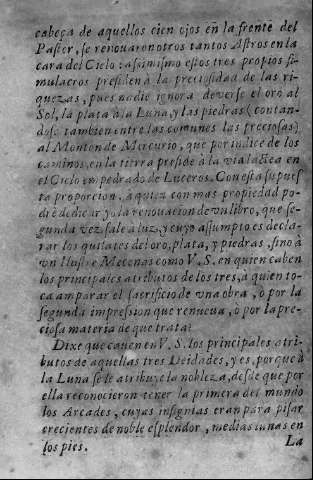 cabeça de aquellos cien ojos en la frente del
Pastor, se renouaron otros tantos Astros en la
cara del Cielo: assimismo estos tres propios si-
mulacros presiden à la preciosidad de las ri-
quezas, pues nadie ignora deverse el oro al
Sol, la plata à la Luna, y las piedras (contan-
dose tambien entre las comunes las preciosas)
al Monton de Mercurio, que por indice de los
caminos, en la tierra preside à la via lactea en
el Cielo empedrado de Luceros. Con esta supues
ta proporcion, à quien con mas propiedad po-
drè dedicar yo la renouacion de vn libro, que se-
gunda vez sale à luz, y cuyo assumpto es decla-
rar los quilates del oro, plata, y piedras, sino à
vn Ilustre Mecenas como V.S. en quien caben
los principales atributos de los tres, à quien to-
ca amparar el sacrificio de vna obra, o por la
segunda impression que renueua, o por la pre-
ciosa materia de que trata?
Dixe que caven en V.S. los principales atri-
butos de aquellas tres Deidades, y es, porque à
la Luna se le atribuye la nobleza, desde que por
ella reconocieron tener la primera del mundo
los Arcades, cuyas insignias eran para pisar
crecientes de noble esplendor, medias lunas en
los pies.
La